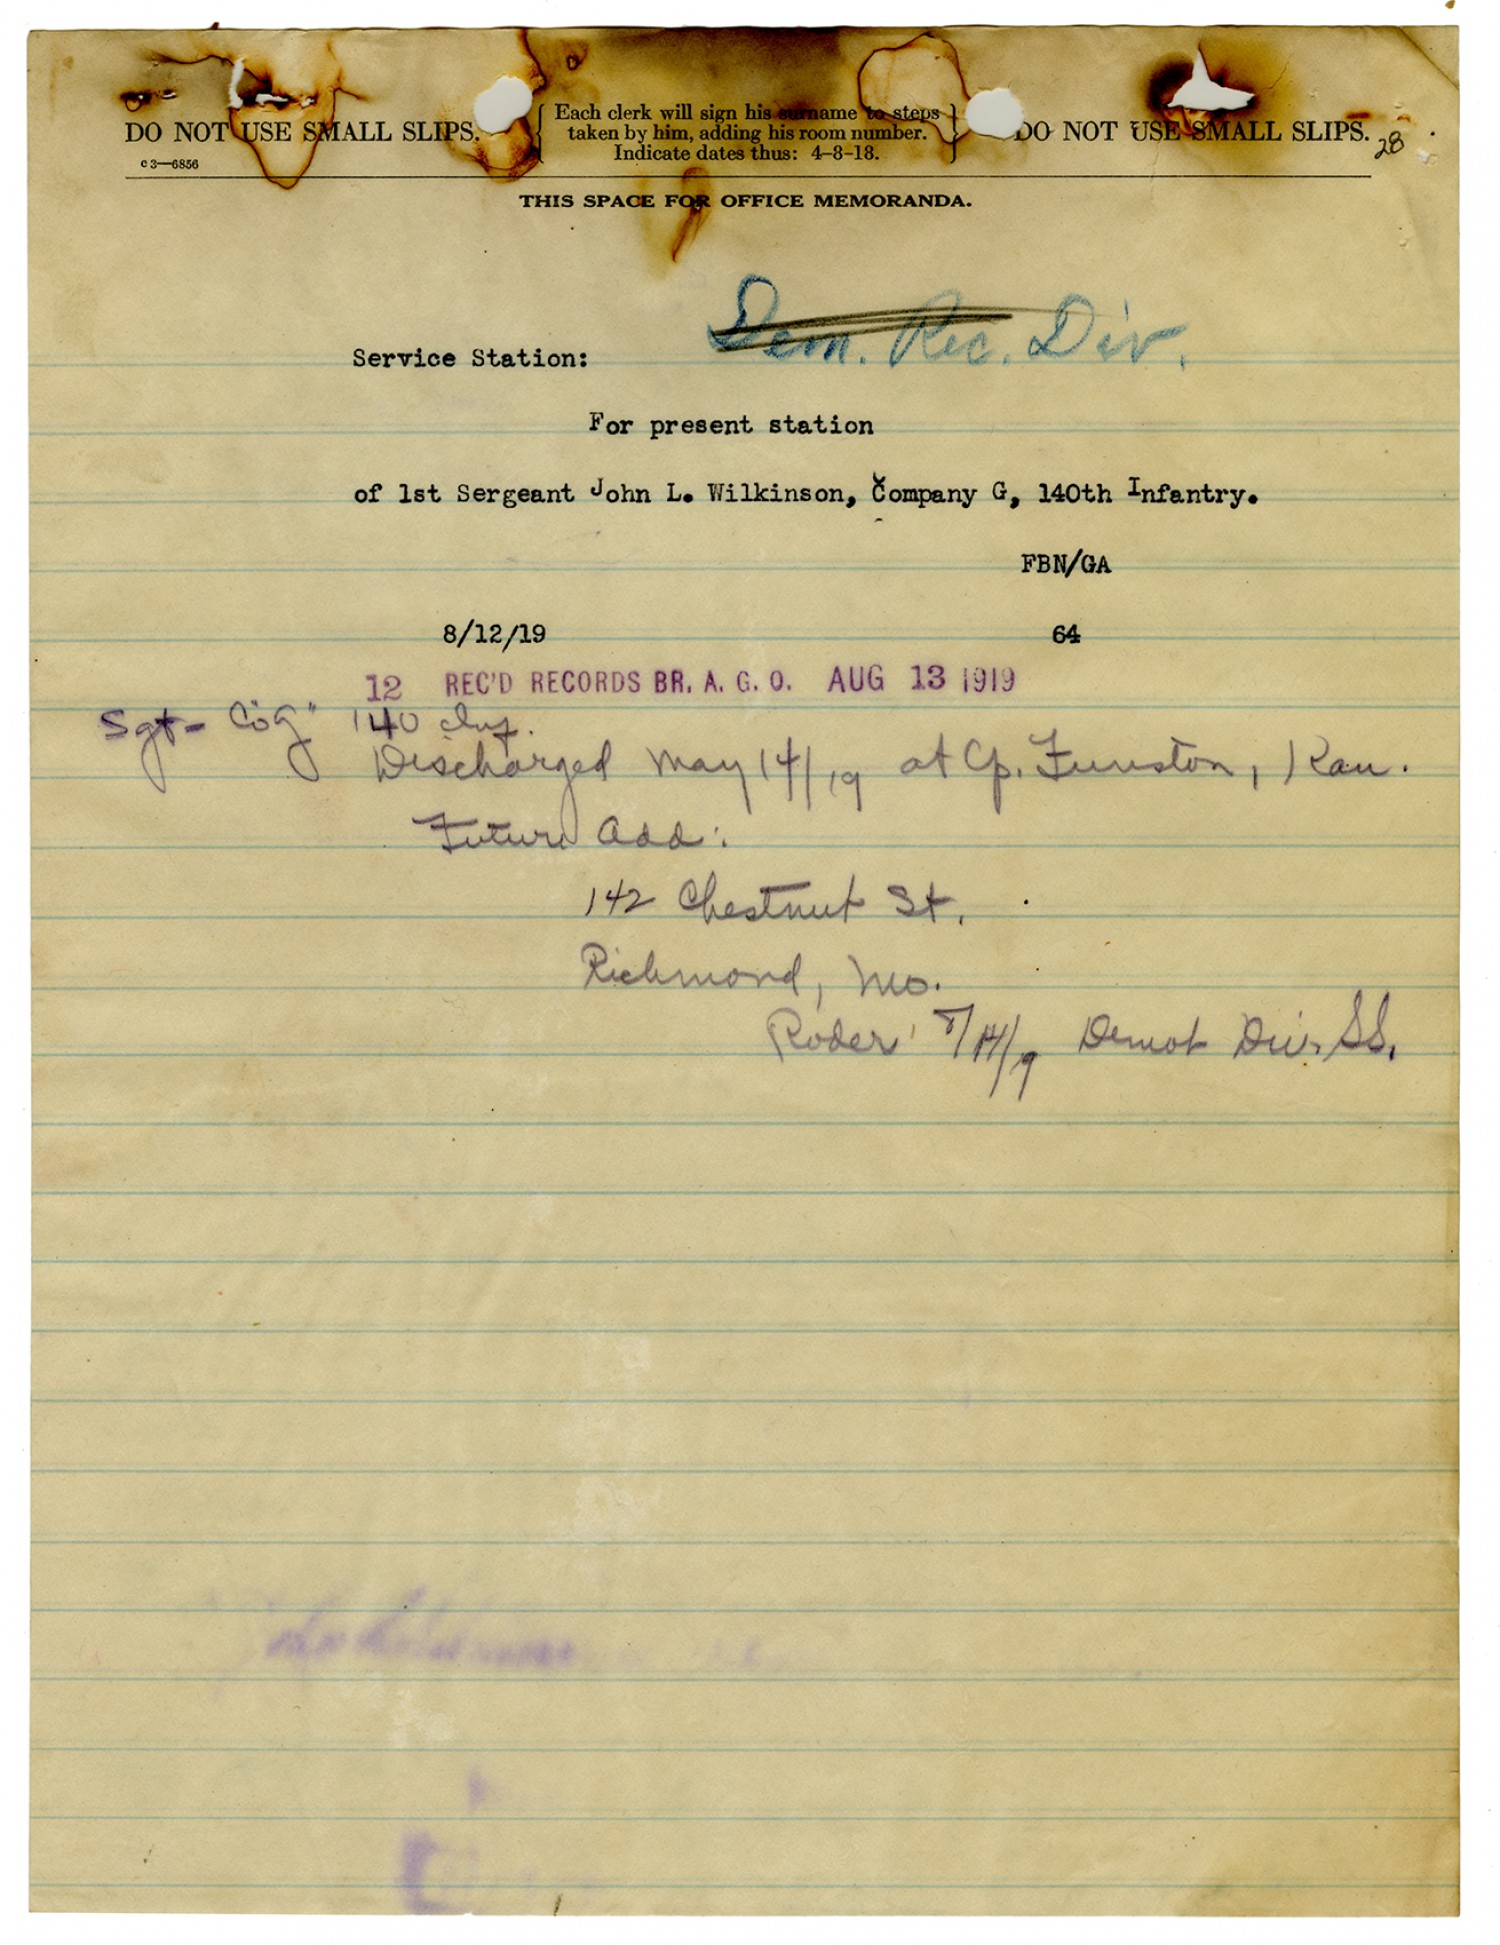 DO NOT USE SMALL SLIPS.
Each clerk will sign his surname to steps
taken by him, adding his room number.
Indicate dates thus: 4-8-18.
DO NOT USE SMALL SLIPS.
28
c3—6856
THIS SPACE FOR OFFICE MEMORANDA.
Dem. Rec. Div.
Service Station:
For present station
of 1st Sergeant John L. Wilkinson, Company G, 140th Infantry.
FBN/GA
8/12/19 64
12 REC'D RECORDS BR. A. G. O. AUG 13 1919
Sgt- Co "G" 140 Inf.
Discharged May 14/19 at Cp. Funston, Kan.
Future Add:
142 Chestnut St.
Richmond, Mo.
Roder 8/14/19 Demob Div. SS.